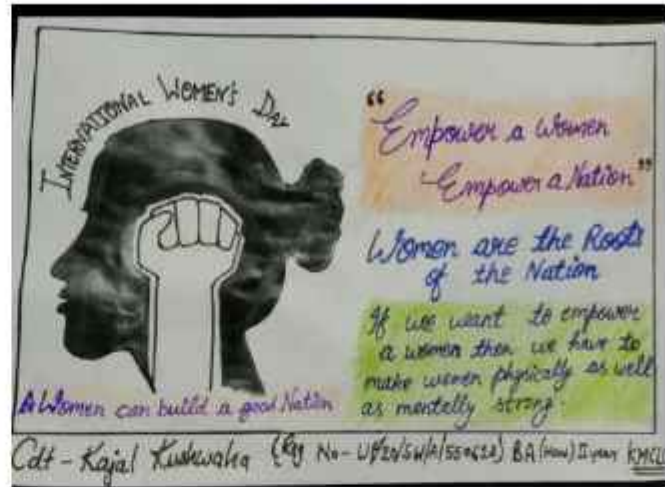 INTERNATIONAL WOMEN'S DAY
"Empower a Women
Empower a Nation"
Women are the Roots
of the Nation
If we want to empower
a women then we have to
make women physically as well
as mentally strong.
A Women can build a good Nation
Cdt - Kajal Kushwaha (Reg No- BA (Hons) II year KMCLU